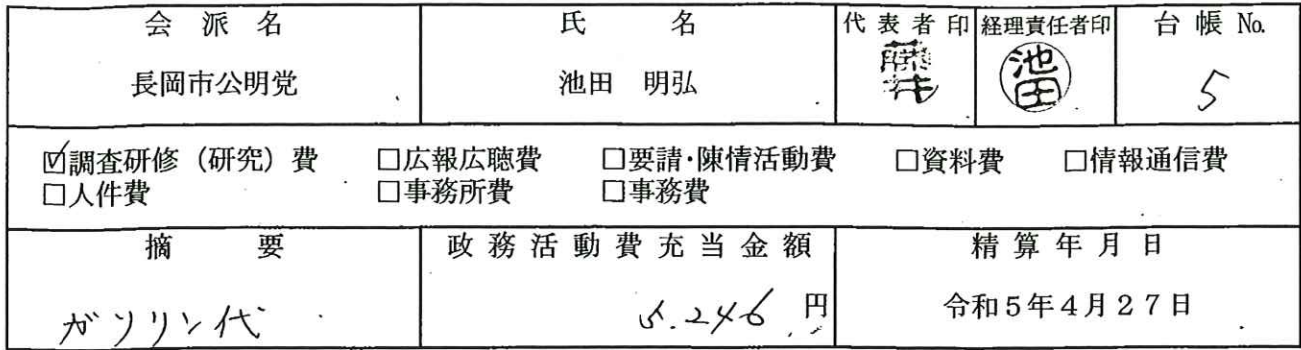 会派名 氏名 代表者印 経理責任者印 台帳No.
長岡市公明党 池田 明弘 藤井 池田 5
☑調査研修（研究）費 □広報広聴費 □要請・陳情活動費 □資料費 □情報通信費
□人件費 □事務所費 □事務費
摘要 政務活動費充当金額 精算年月日
ガソリン代 5.246円 令和5年4月27日